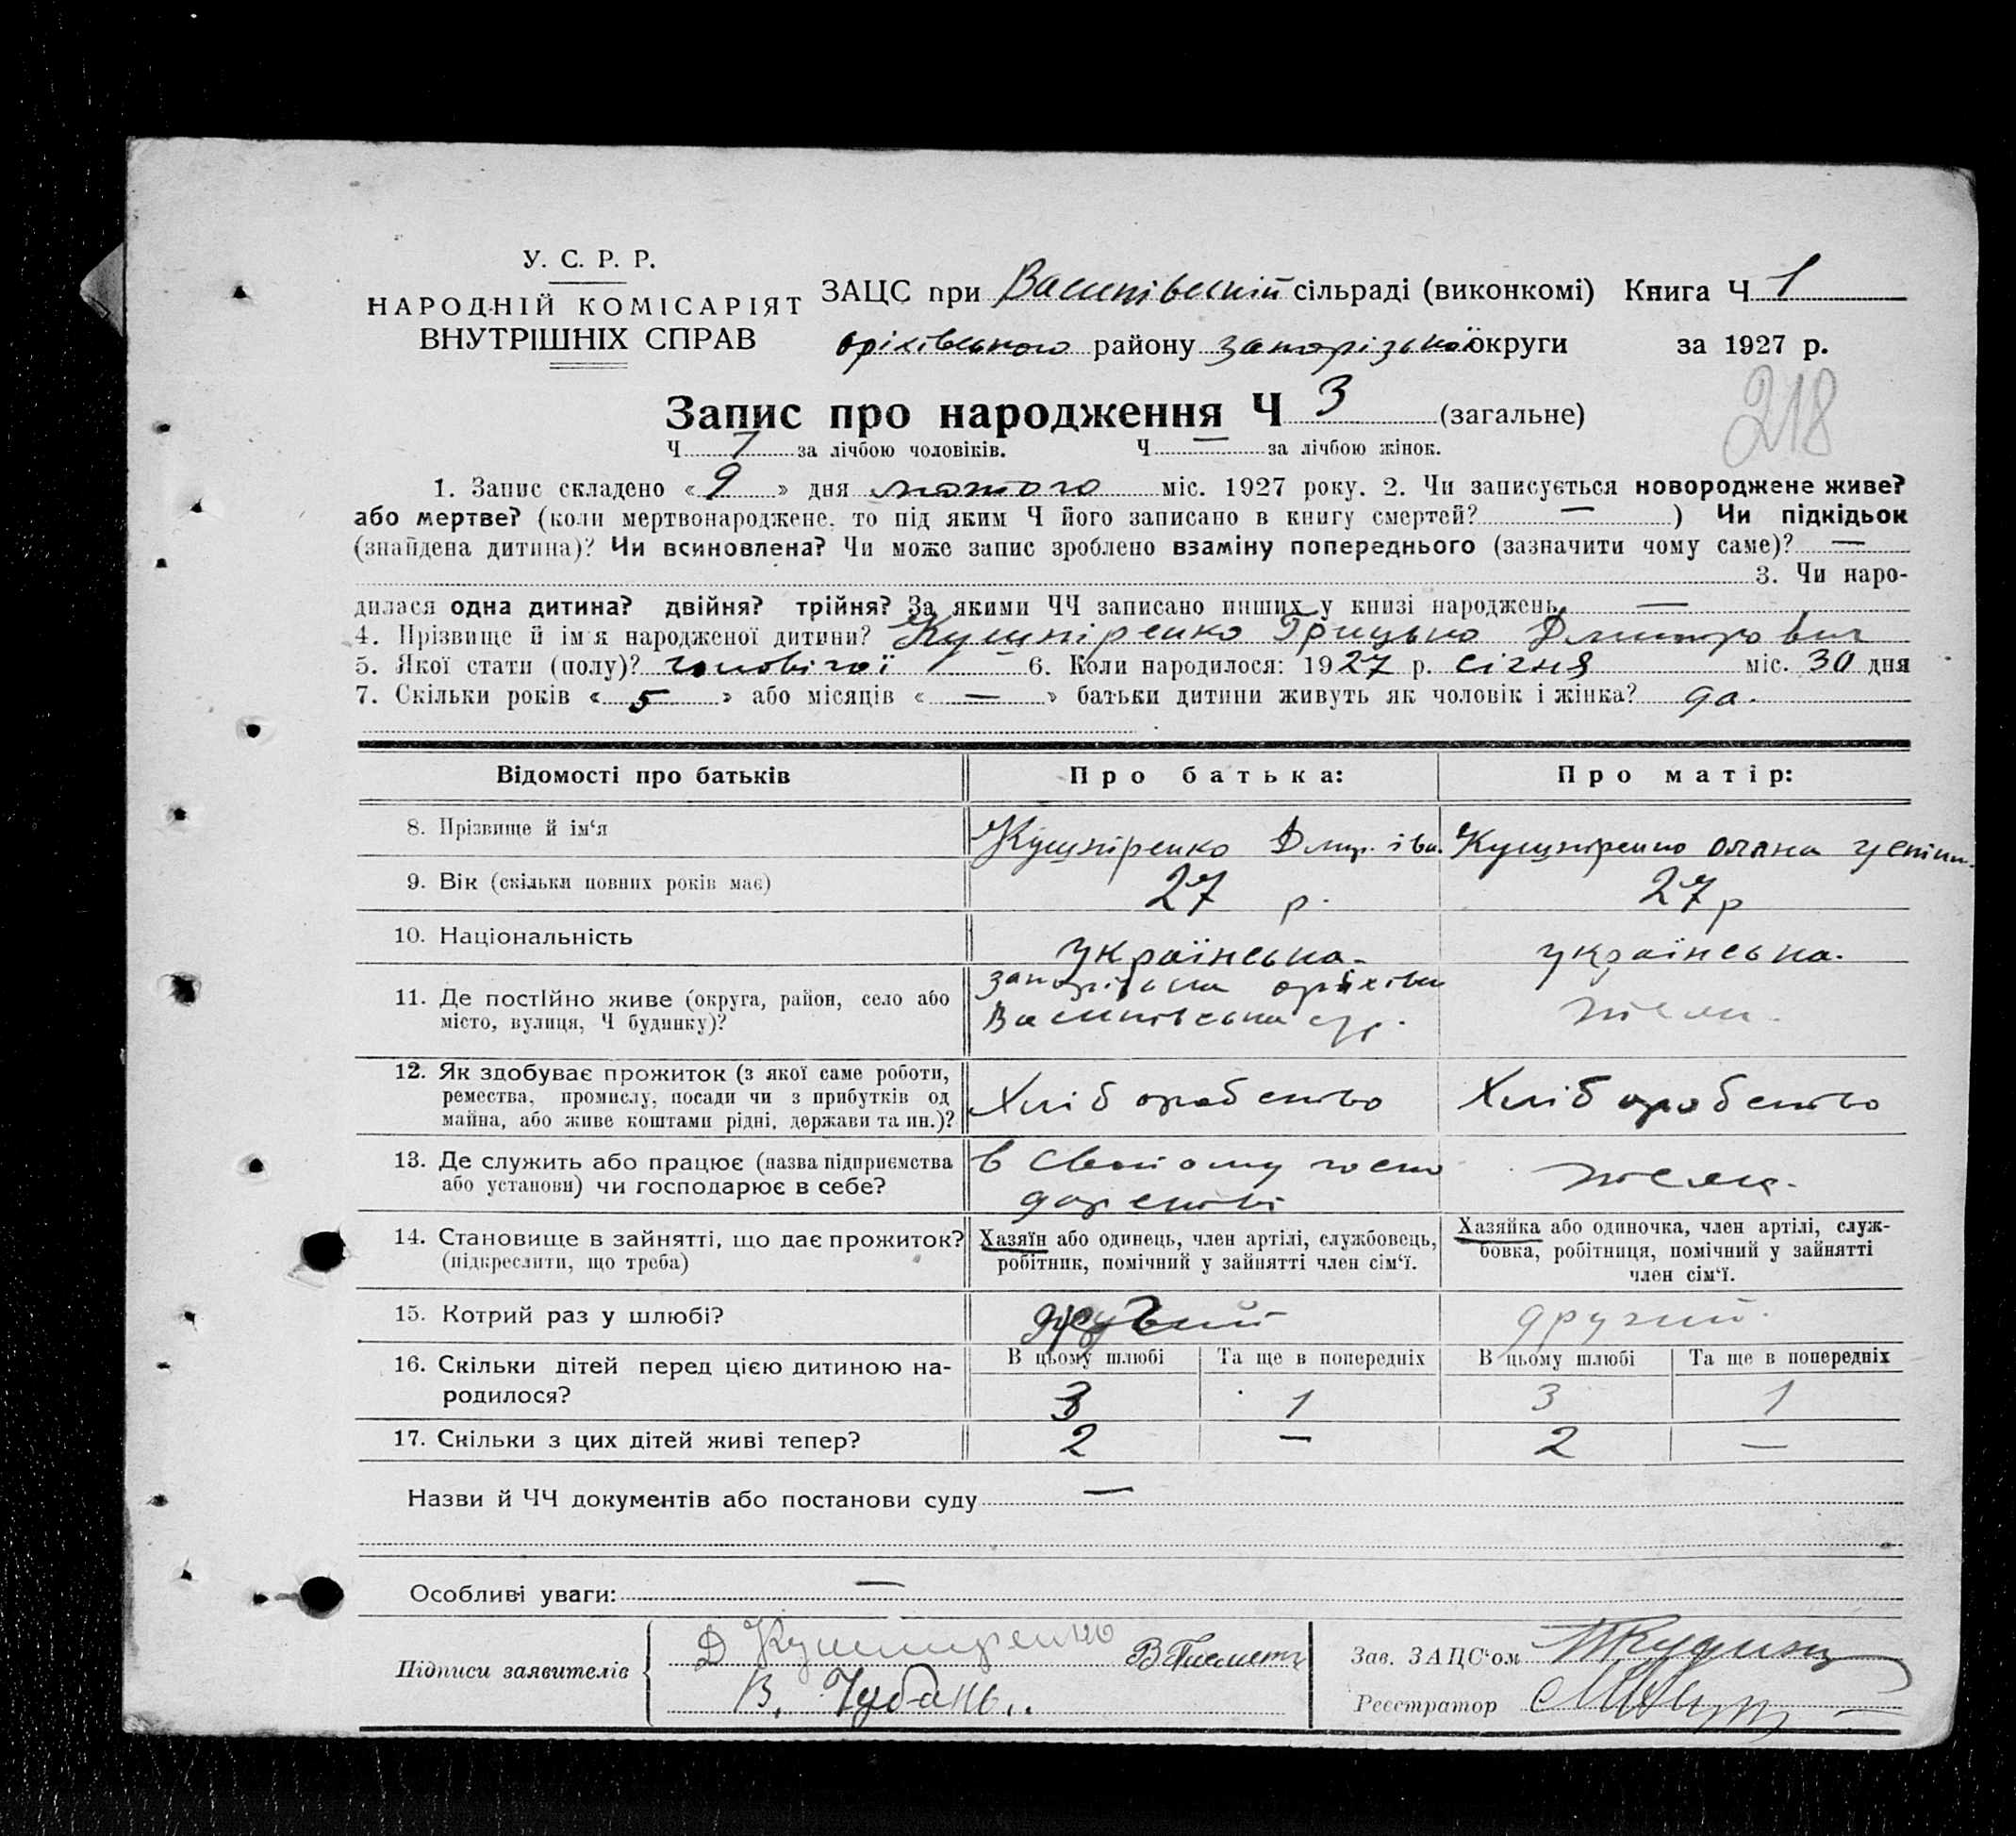 У. С. Р. Р.
НАРОДНІЙ КОМІСАРІЯТ
ВНУТРІШНІХ СПРАВ
ЗАЦС при сільраді (виконкомі) Книга Ч 1
оріхівського району запорізької округи за 1927 р.
218
Запис про народження Ч 3 (загальне)
Ч за лічбою чоловіків. Ч — за лічбою жінок.
1. Запис складено « 9 » дня лютого міс. 1927 року. 2. Чи записується новороджене живе?
або мертве? (коли мертвонароджене, то під яким Ч його записано в книгу смертей? — ) Чи підкідьок
(знайдена дитина)? Чи всиновлена? Чи може запис зроблено взаміну попереднього (зазначити чому саме)? —
3. Чи наро-
дилася одна дитина? двійня? трійня? За якими ЧЧ записано инших у книзі народжень —
4. Прізвище й ім'я народженої дитини? Кушніренко Грицько Дмитрович
5. Якої стати (полу)? чоловічої 6. Коли народилося: 1927 р. січня міс. 30 дня
7. Скільки років « 5 » або місяців « — » батьки дитини живуть як чоловік і жінка? да.
Відомості про батьків Про батька: Про матір:
8. Прізвище й ім'я Кушніренко Дмит. Іва. Кушніренко
9. Вік (скільки повних років має) 27 р. 27 р
10. Національність українська. українська.
11. Де постійно живе (округа, район, село або
місто, вулиця, Ч будинку)?
12. Як здобуває прожиток (з якої саме роботи,
ремества, промислу, посади чи з прибутків од
майна, або живе коштами рідні, держави та ин.)? Хліборобство Хліборобство
13. Де служить або працює (назва підприємства
або установи) чи господарює в себе? в своїому госпо
дарстві
14. Становище в зайнятті, що дає прожиток?
(підкреслити, що треба)
Хазяїн або одинець, член артілі, службовець,
робітник, помічний у зайнятті член сім'ї.
Хазяйка або одиночка, член артілі, служ-
бовка, робітниця, помічний у зайнятті
член сім'ї.
15. Котрий раз у шлюбі? другий другий
16. Скільки дітей перед цією дитиною на-
родилося?
В цьому шлюбі Та ще в попередніх В цьому шлюбі Та ще в попередніх
3 1 3 1
17. Скільки з цих дітей живі тепер? 2 — 2 —
Назви й ЧЧ документів або постанови суду —
Особливі уваги: —
Підписи заявителів
Д Кушниренко
В. Чубань.
Зав. ЗАЦС'ом
Реєстратор